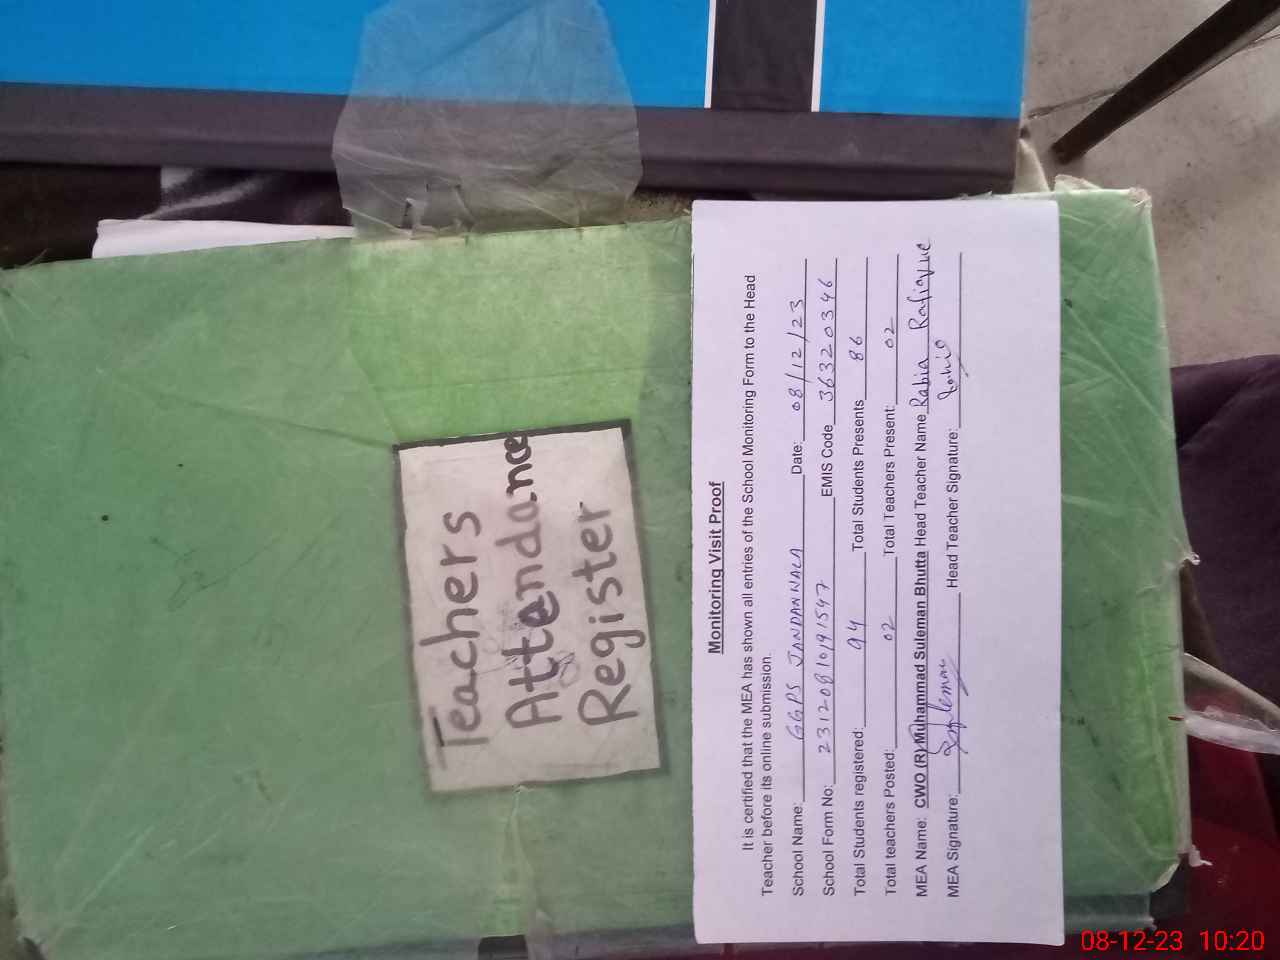 Teachers
Attendance
Register
Monitoring Visit Proof
It is certified that the MEA has shown all entries of the School Monitoring Form to the Head
Teacher before its online submission.
School Name: GGPS JANDANWALA Date: 08/12/23
School Form No: 23120810191547 EMIS Code 36320346
Total Students registered: 94 Total Students Presents 86
Total teachers Posted: 02 Total Teachers Present: 02
MEA Name: CWO (R) Muhammad Suleman Bhutta Head Teacher Name Rabia Rafique
MEA Signature: Suleman Head Teacher Signature:
08-12-23 10:20